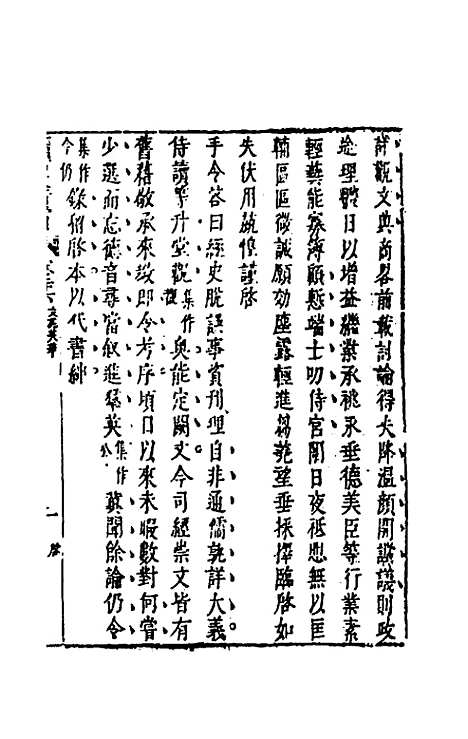 詳觀文典商畧前載討論得失降溫顏開讜議則政
途理體日以增益繼業承祧永垂德美臣等行業素
輕藝能寡薄顧慙端士叨侍宮闈日夜祗懼無以匡
輔區區微誠願効塵露輕進芻蕘望垂採擇臨啓如
失伏用兢惶謹啓
手令答曰經史脫誤事資刊理自非通儒孰詳大義
侍讀等升堂覩集作覩奥能定闕文今司經崇文皆有
舊藉敬承來啟即令考序頃日以來未暇數對何嘗
少選而忘德音尋當叙進羣英集作公冀聞餘論仍令
集作今仍錄稍啓本以代書紳